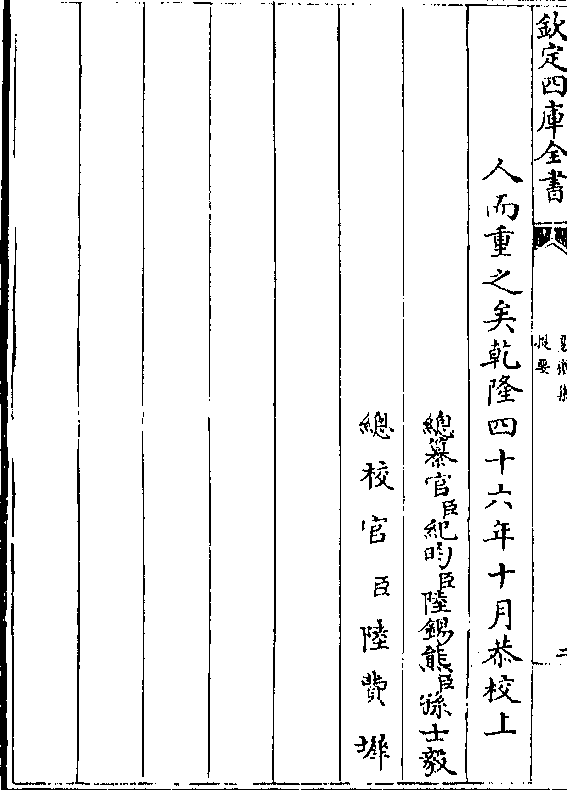 欽定四庫全書
提要
人而重之矣乾隆四十六年十月恭校上
總纂官臣紀昀臣陸錫熊臣孫士毅
總校官臣陸費墀